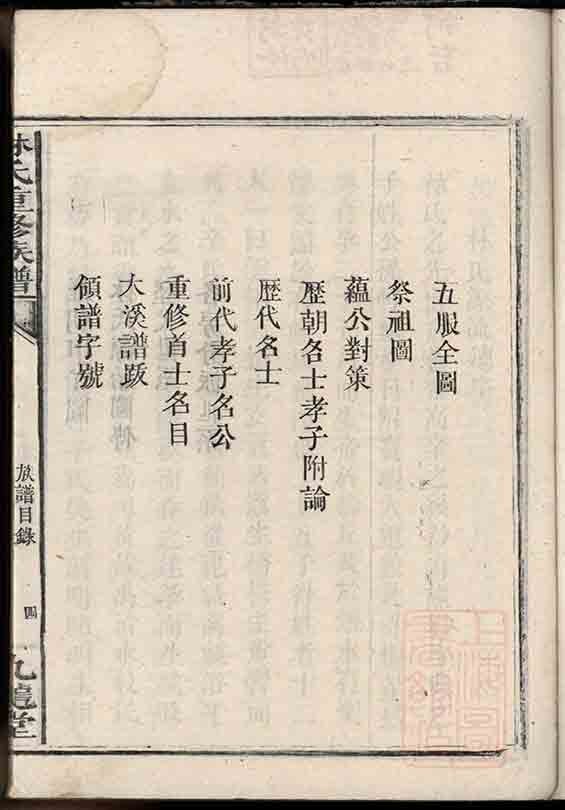 五服全圖
祭祖圖
蘊公對策
歷朝名士孝子附論
歷代名士
前代孝子名公
重修首士名目
大溪譜跋
領譜字號
林氏重修族譜
族譜目錄
四
九龍堂
上海圖書館藏